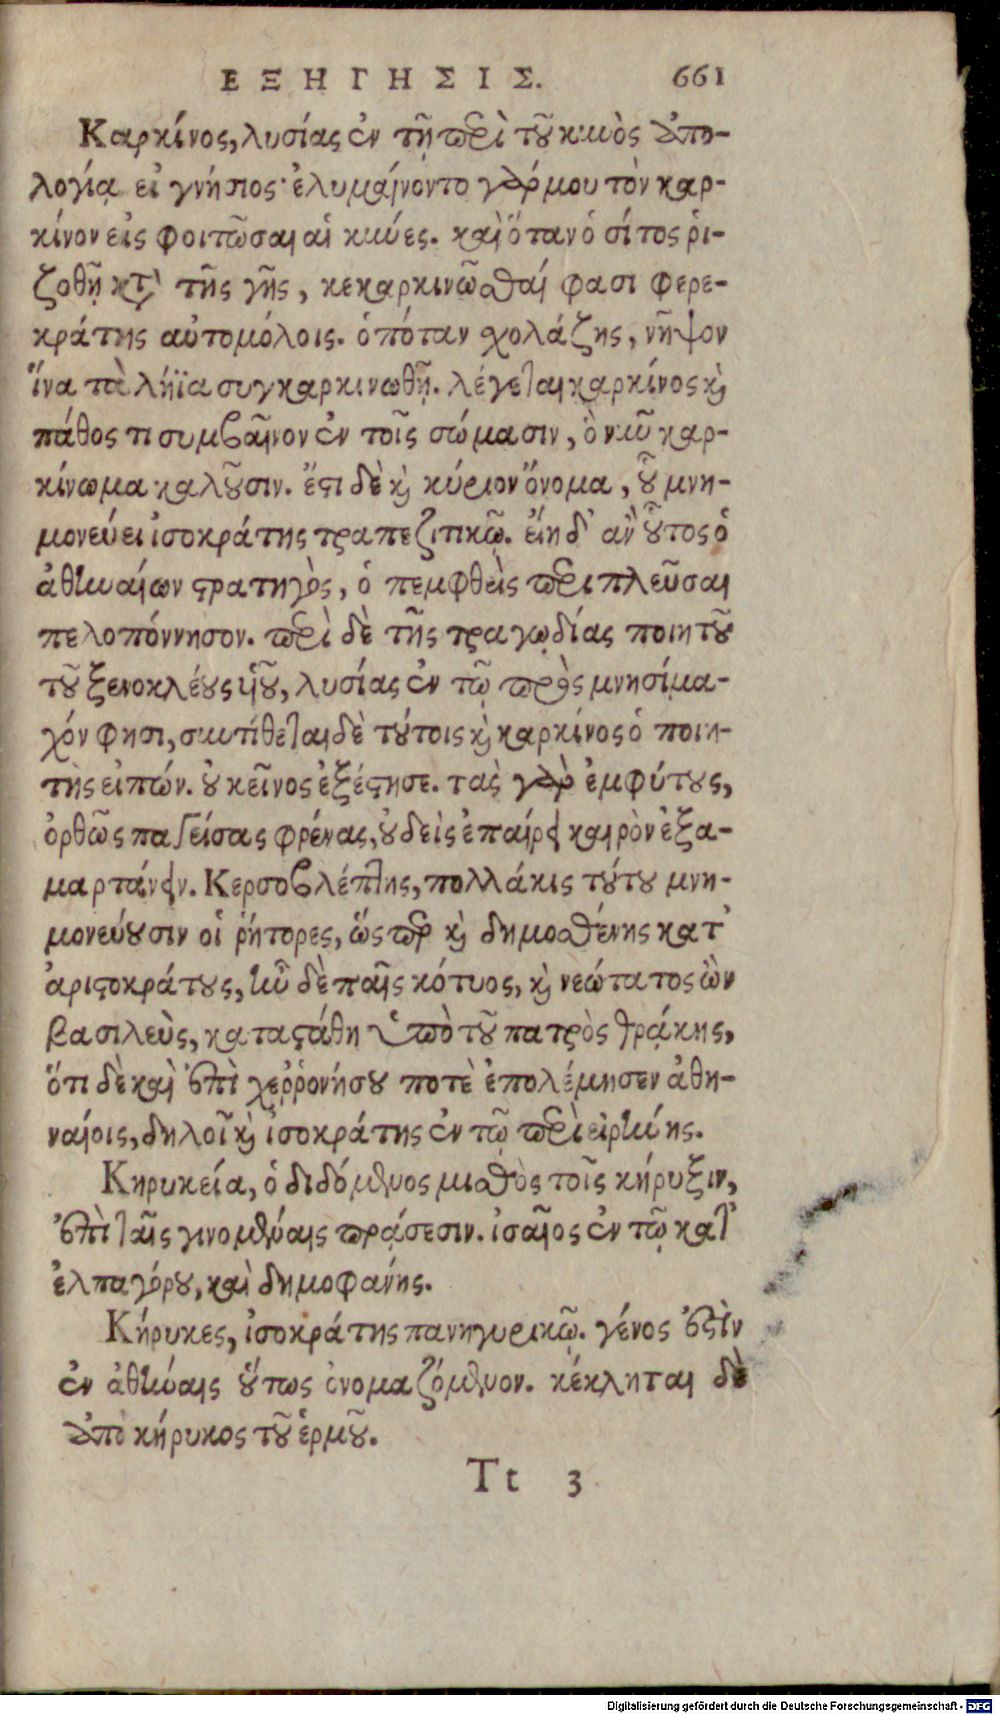 ΕΞΗΓΗΣΙΣ. 661
Καρκίνος, λυσίας ἐν τῇ περὶ τοῦ κυνὸς ἀπο-
λογίᾳ εἰ γνήσιος· ἐλυμαίνοντο γάρ μου τὸν καρ-
κίνον εἰς φοιτῶσαι αἱ κύνες. καὶ ὅταν ὁ σίτος ῥι-
ζοθῇ κατὰ τῆς γῆς, κεκαρκινῶσθαί φασι φερε-
κράτης αὐτομόλοις. ὁπόταν χολάζης, νῆψον
ἵνα τὰ λήϊα συγκαρκινωθῇ. λέγεται καρκίνος καὶ
πάθος τι συμβαῖνον ἐν τοῖς σώμασιν, ὃ νῦν καρ-
κίνωμα καλοῦσιν. ἔστι δὲ καὶ κύριον ὄνομα, οὗ μνη-
μονεύει ἰσοκράτης τραπεζιτικῷ. εἴη δ' ἂν οὗτος ὁ
ἀθηναίων στρατηγὸς, ὁ πεμφθεὶς περιπλεῦσαι
πελοπόννησον. περὶ δὲ τῆς τραγῳδίας ποιητοῦ
τοῦ ξενοκλέους υἱοῦ, λυσίας ἐν τῷ πρὸς μνησίμα-
χόν φησι, συντίθεται δὲ τούτοις καὶ καρκίνος ὁ ποιη-
τὴς εἰπών. οὐ κεῖνος ἐξέστησε. τὰς γὰρ ἐμφύτους,
ὀρθῶς παγείσας φρένας, οὐδεὶς ἐπαίρει καιρὸν ἐξα-
μαρτάνειν. Κερσοβλέπτης, πολλάκις τούτου μνη-
μονεύουσιν οἱ ῥήτορες, ὥσπερ καὶ δημοσθένης κατ'
ἀριστοκράτους, ἦν δὲ παῖς κότυος, καὶ νεώτατος ὢν
βασιλεὺς, κατασάθη ὑπὸ τοῦ πατρὸς θράκης,
ὅτι δὲ καὶ ἐπὶ χερρονήσου ποτὲ ἐπολέμησεν ἀθη-
ναίοις, δηλοῖ καὶ ἰσοκράτης ἐν τῷ περὶ εἰρήνης.
Κηρυκεία, ὁ διδόμενος μισθὸς τοῖς κήρυξιν,
ἐπὶ ταῖς γινομέναις πράσεσιν. ἰσαῖος ἐν τῷ κατ'
ἐλπαγόρου, καὶ δημοφάνης.
Κήρυκες, ἰσοκράτης πανηγυρικῷ. γένος ἐστὶν
ἐν ἀθήναις οὕπως ὀνομαζόμενον. κέκληται δὲ
ἀπὸ κήρυκος τοῦ ἑρμοῦ.
Tt 3
Digitalisierung gefördert durch die Deutsche Forschungsgemeinschaft - DFG